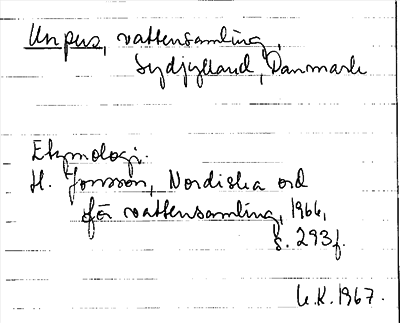 Unpus, vattensamling,
Sydjylland, Danmark
Etymologi.
H. Jonsson, Nordiska ord
för vattensamling, 1966,
s. 293f.
U.K. 1967.